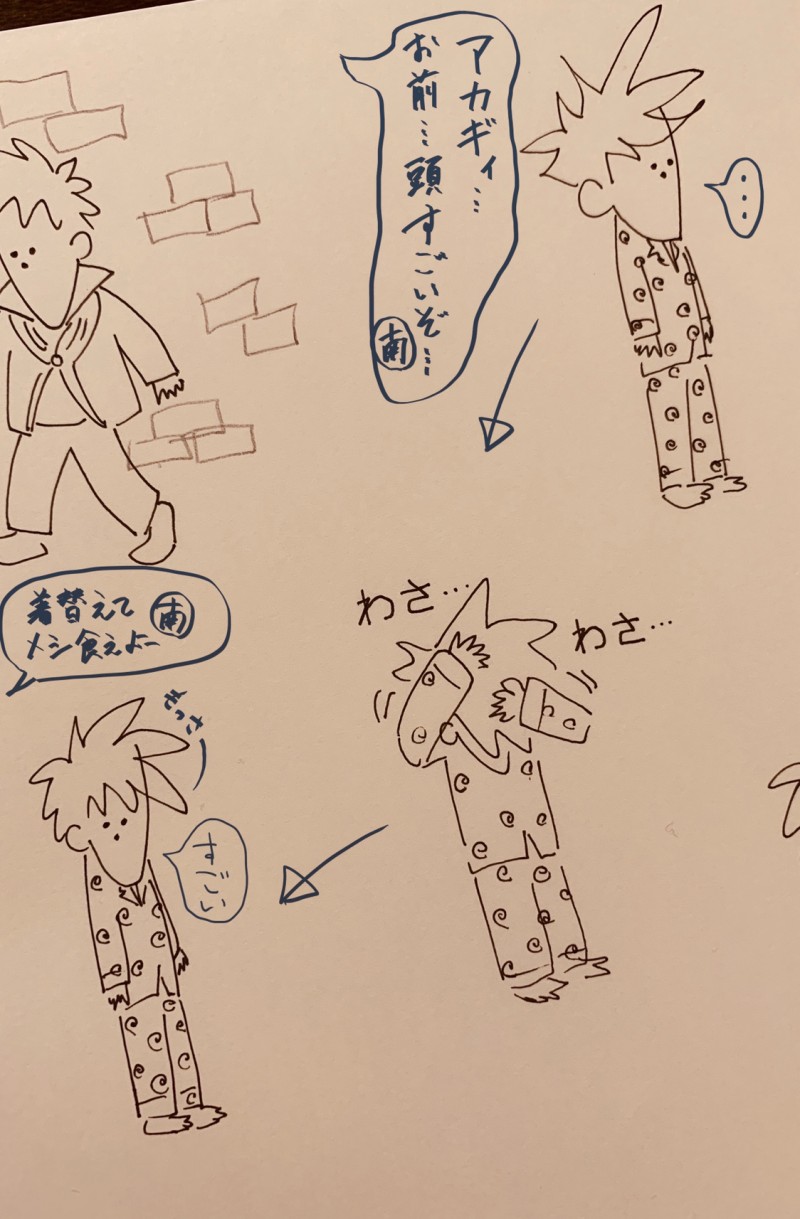 アカギィ…
お前…頭すごいぞ…
南
…
わさ…
わさ…
着替えて
メシ食えよー
南
すごい